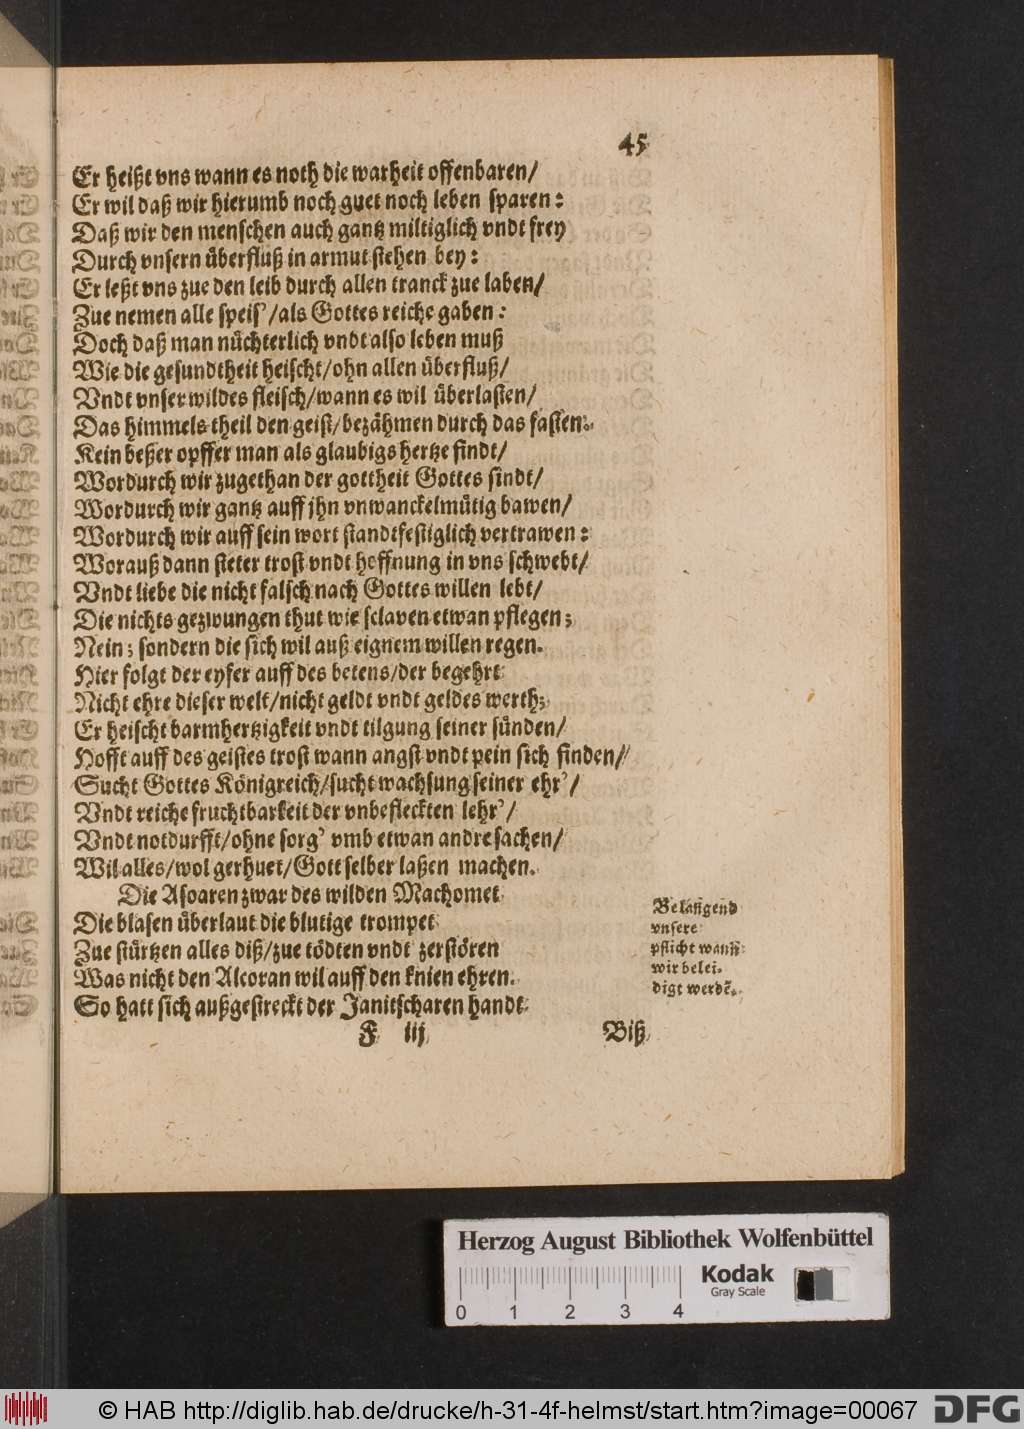 45
Er heißt vns wann es noth die warheit offenbaren/
Er wil daß wir hierumb noch guet noch leben sparen:
Daß wir den menschen auch gantz miltiglich vndt frey
Durch vnsern überfluß in armut stehen bey:
Er leßt vns zue den leib durch allen tranck zue laben/
Zue nemen alle speis'/als Gottes reiche gaben:
Doch daß man nüchterlich vndt also leben muß
Wie die gesundtheit heischt/ohn allen überfluß/
Vndt vnser wildes fleisch/wann es wil überlasten/
Das himmels theil den geist/bezähmen durch das fasten.
Kein beßer opffer man als glaubigs hertze findt/
Wordurch wir zugethan der gottheit Gottes sindt/
Wordurch wir gantz auff jhn vnwanckelmütig bawen/
Wordurch wir auff sein wort standtfestiglich vertrawen:
Worauß dann steter trost vndt hoffnung in vns schwebt/
Vndt liebe die nicht falsch nach Gottes willen lebt/
Die nichts gezwungen thut wie sclaven etwan pflegen;
Nein; sondern die sich wil auß eignem willen regen.
Hier folgt der eyfer auff des betens/der begehrt
Nicht ehre dieser welt/nicht geldt vndt geldes werth;
Er heischt barmhertzigkeit vndt tilgung seiner sünden/
Hofft auff des geistes trost wann angst vndt pein sich finden/
Sucht Gottes Königreich/sucht wachsung seiner ehr'/
Vndt reiche fruchtbarkeit der vnbefleckten lehr'/
Vndt notdurfft/ohne sorg' vmb etwan andre sachen/
Wil alles/wol gerhuet/Gott selber laßen machen.
Die Asoaren zwar des wilden Machomet
Die blasen überlaut die blutige trompet
Zue stürtzen alles diß/zue tödten vndt zerstören
Was nicht den Alcoran wil auff den knien ehren.
So hatt sich außgestreckt der Janitscharen handt
Belangend
vnsere
pflicht wann
wir belei-
digt werdē.
F iij
Biß
Herzog August Bibliothek Wolfenbüttel
0 1 2 3 4
Kodak
Gray Scale
© HAB http://diglib.hab.de/drucke/h-31-4f-helmst/start.htm?image=00067
DFG